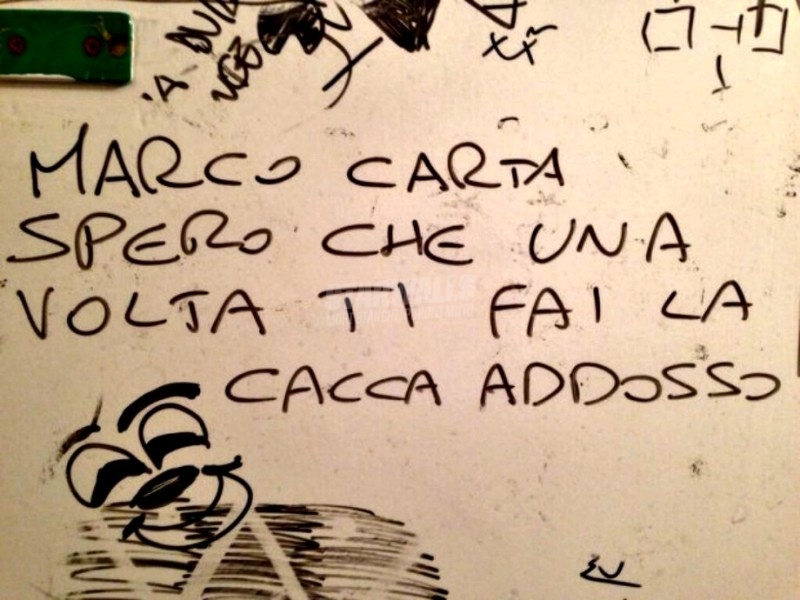 MARCO CARTA
SPERO CHE UNA
VOLTA TI FAI LA
CACCA ADDOSSO